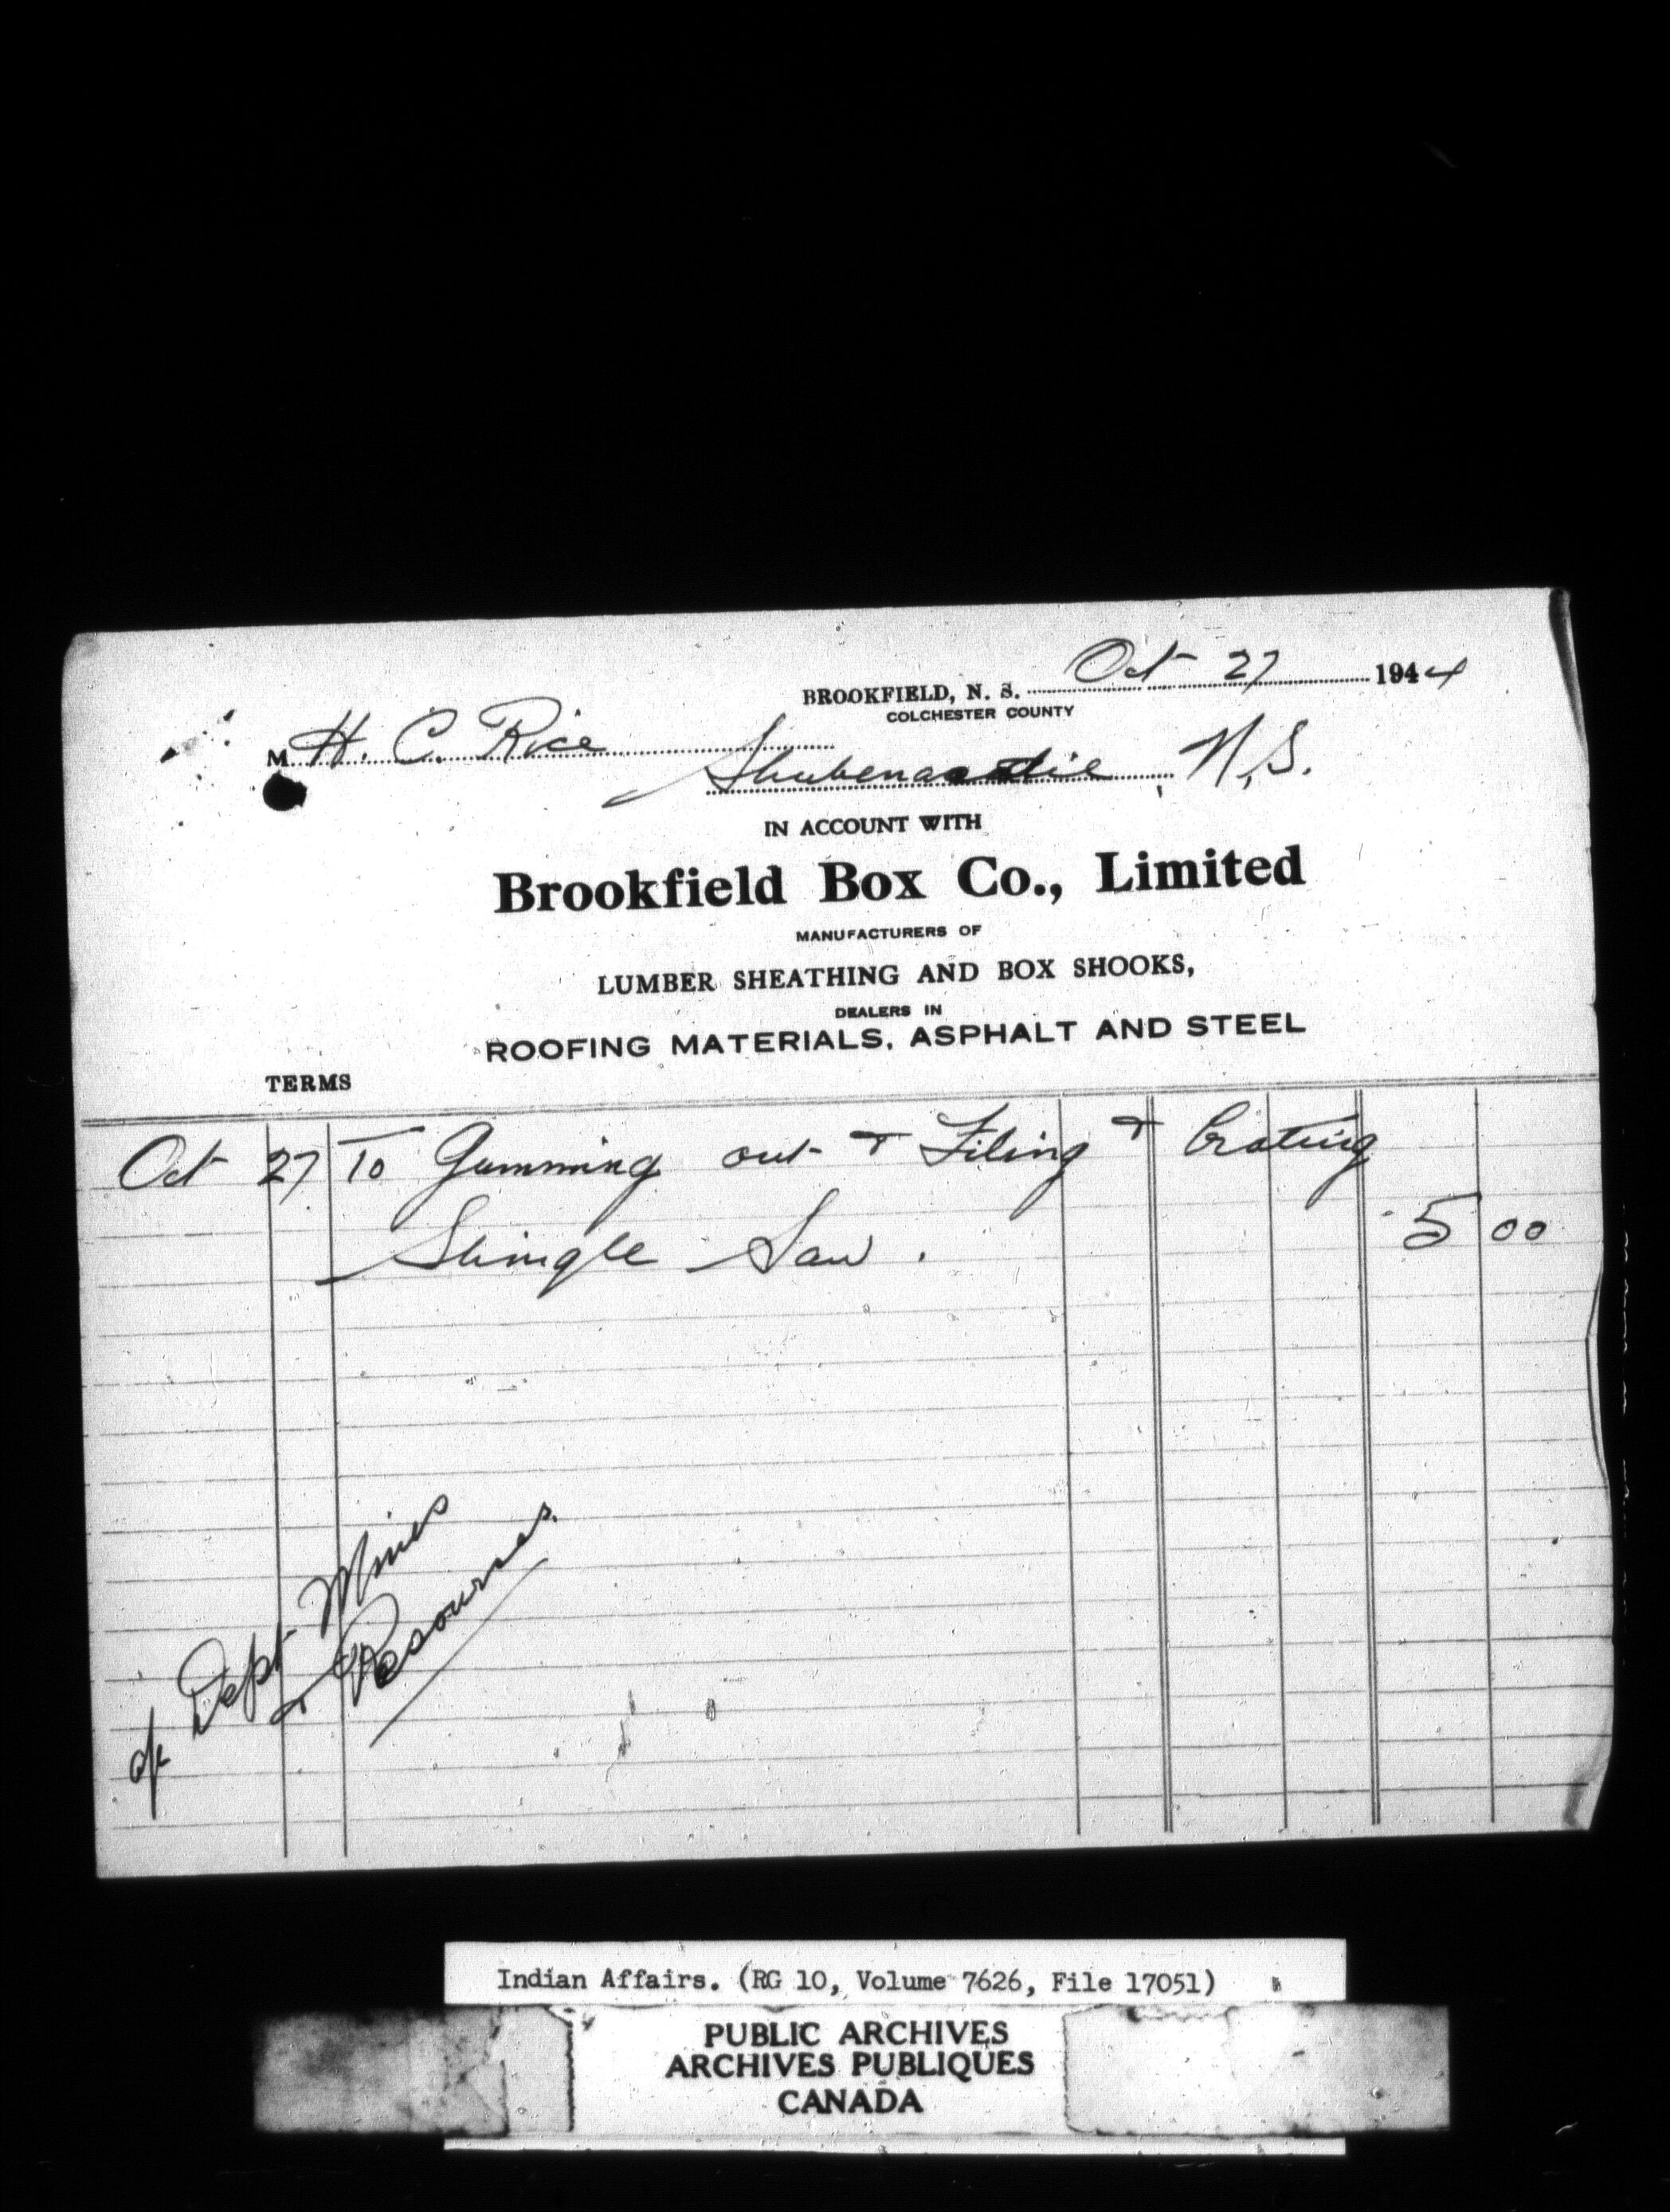 BROOKFIELD, N. S. Oct 27 1944
COLCHESTER COUNTY
M H. C. Rice
Shubenacadie, N.S.
IN ACCOUNT WITH
Brookfield Box Co., Limited
MANUFACTURERS OF
LUMBER SHEATHING AND BOX SHOOKS,
DEALERS IN
ROOFING MATERIALS, ASPHALT AND STEEL
TERMS
Oct 27 To Gumming out & Filing & Crating
Shingle Saw. 5 00
Dept Mines
& Resourses.
Indian Affairs. (RG 10, Volume 7626, File 17051)
PUBLIC ARCHIVES
ARCHIVES PUBLIQUES
CANADA